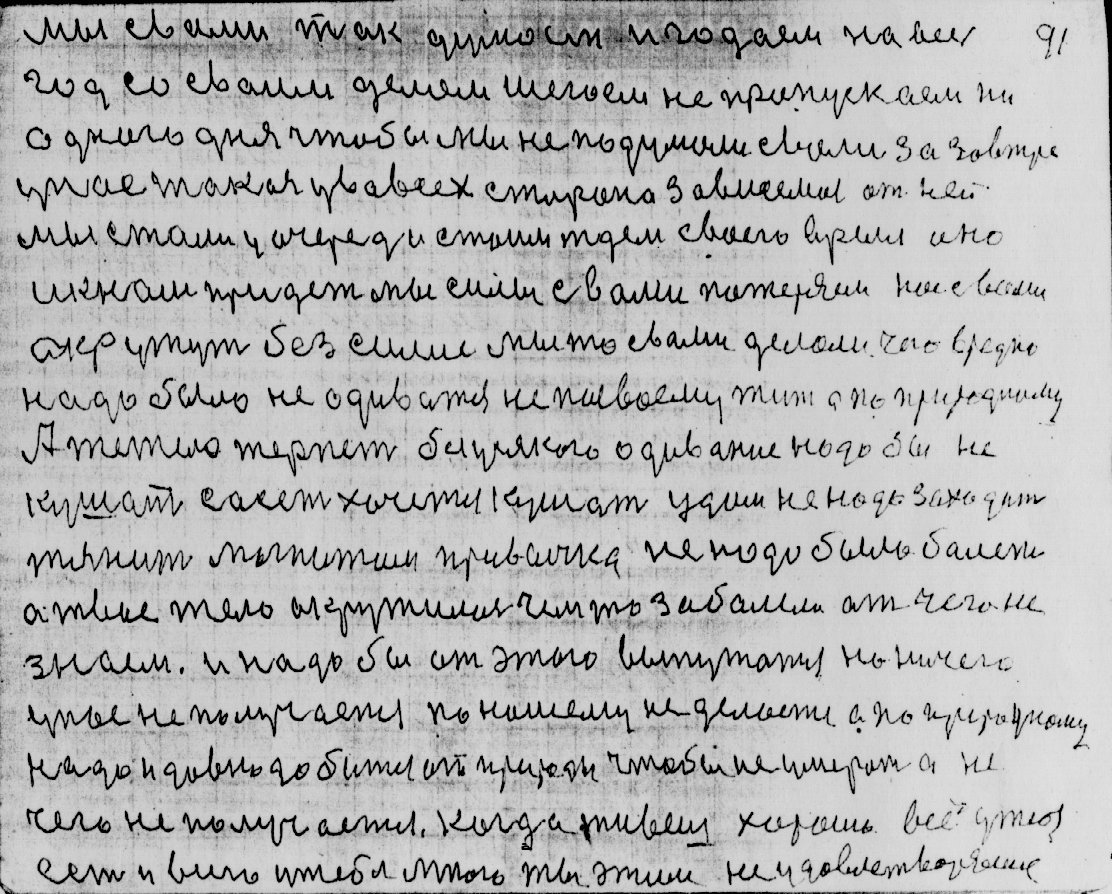 мы свами так думаем и гадаем на весь 91
год со своим делом шегаем не пропускаем ни
одного дня чтобы мы не подумали свами за завтре
у нас такая у во всех сторона зависемая от ней
мы стали у очереди стоим ждем своего время оно
и к нам придет мы силы свами потеряем нас свами
акружут без силие мы то свами делали чего вредно
надо было не одиватя не по своему жит а по природному
А тело терпет без всякого одивание надо бы не
кушат сасет хочетя кушат у дом не надо заходит
тянит магнитом привычка не надо было балет
а твое тело окружилося чем то забалели от чего не
знаем. и надо бы от этого выпутатя но ничего
у нас не получается по нашему не делается а по природному
надо и давно добитя от природы чтобы не умерат а не
чего не получается. когда живеш хорошо всё у тебя
ест и всего у тебя много ты этим не удовлетворяеш